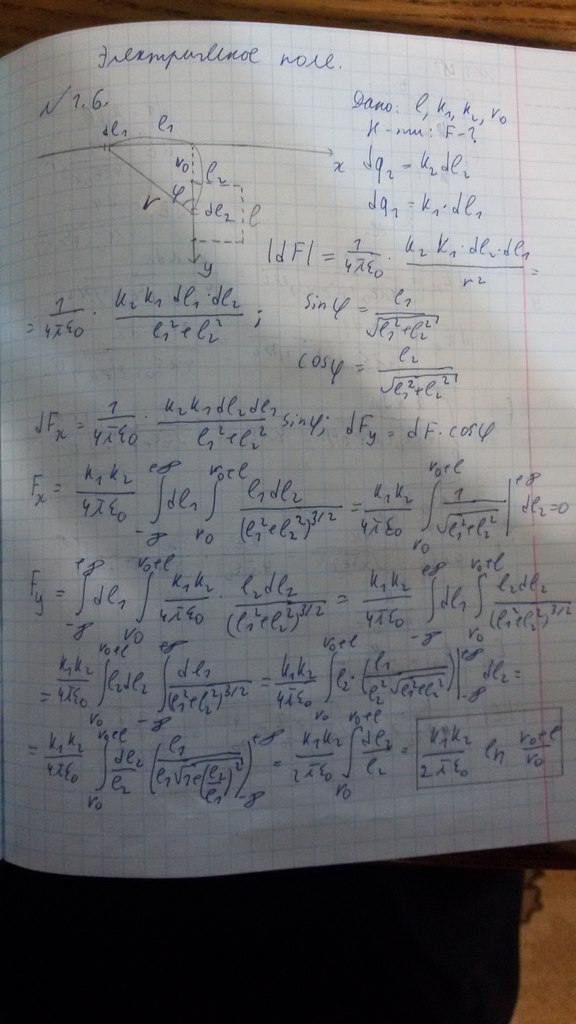 Электрическое поле.
№ 1.6.
Дано: l, k₁, k₂, r₀
Н-ти: F-?
dq₂ = k₂ dl₂
dq₁ = k₁·dl₁
dl₁ l₁ r₀ l₂ x r φ dl₂ l y
|dF| = 1/4πε₀ · k₂ k₁·dl₂·dl₁/r² =
= 1/4πε₀ · k₂k₁ dl₁·dl₂/l₁²+l₂² ; sinφ = l₁/√l₁²+l₂²
cosφ = l₂/√l₁²+l₂²
dFₓ = 1/4πε₀ · k₂k₁dl₂dl₁/l₁²+l₂² sinφ; dFy = dF·cosφ
Fₓ = k₁k₂/4πε₀ ∫_{-∞}^{+∞} dl₁ ∫_{r₀}^{r₀+l} l₁dl₂/(l₁²+l₂²)^{3/2} = k₁k₂/4πε₀ ∫_{r₀}^{r₀+l} 1/√l₁²+l₂² |_{-∞}^{+∞} dl₂=0
Fy = ∫_{-∞}^{+∞} dl₁ ∫_{r₀}^{r₀+l} k₁k₂/4πε₀ · l₂dl₂/(l₁²+l₂²)^{3/2} = k₁k₂/4πε₀ ∫_{-∞}^{+∞} dl₁ ∫_{r₀}^{r₀+l} l₂dl₂/(l₁²+l₂²)^{3/2}
= k₁k₂/4πε₀ ∫_{r₀}^{r₀+l} l₂dl₂ ∫_{-∞}^{+∞} dl₁/(l₁²+l₂²)^{3/2} = k₁k₂/4πε₀ ∫_{r₀}^{r₀+l} l₂·(l₁/l₂²√l₁²+l₂²)|_{-∞}^{+∞} dl₂ =
= k₁k₂/4πε₀ ∫_{r₀}^{r₀+l} dl₂/l₂ (l₁/l₁√1+(l₂/l₁)²)|_{-∞}^{+∞} = k₁k₂/2πε₀ ∫_{r₀}^{r₀+l} dl₂/l₂ = k₁k₂/2πε₀ ln r₀+l/r₀